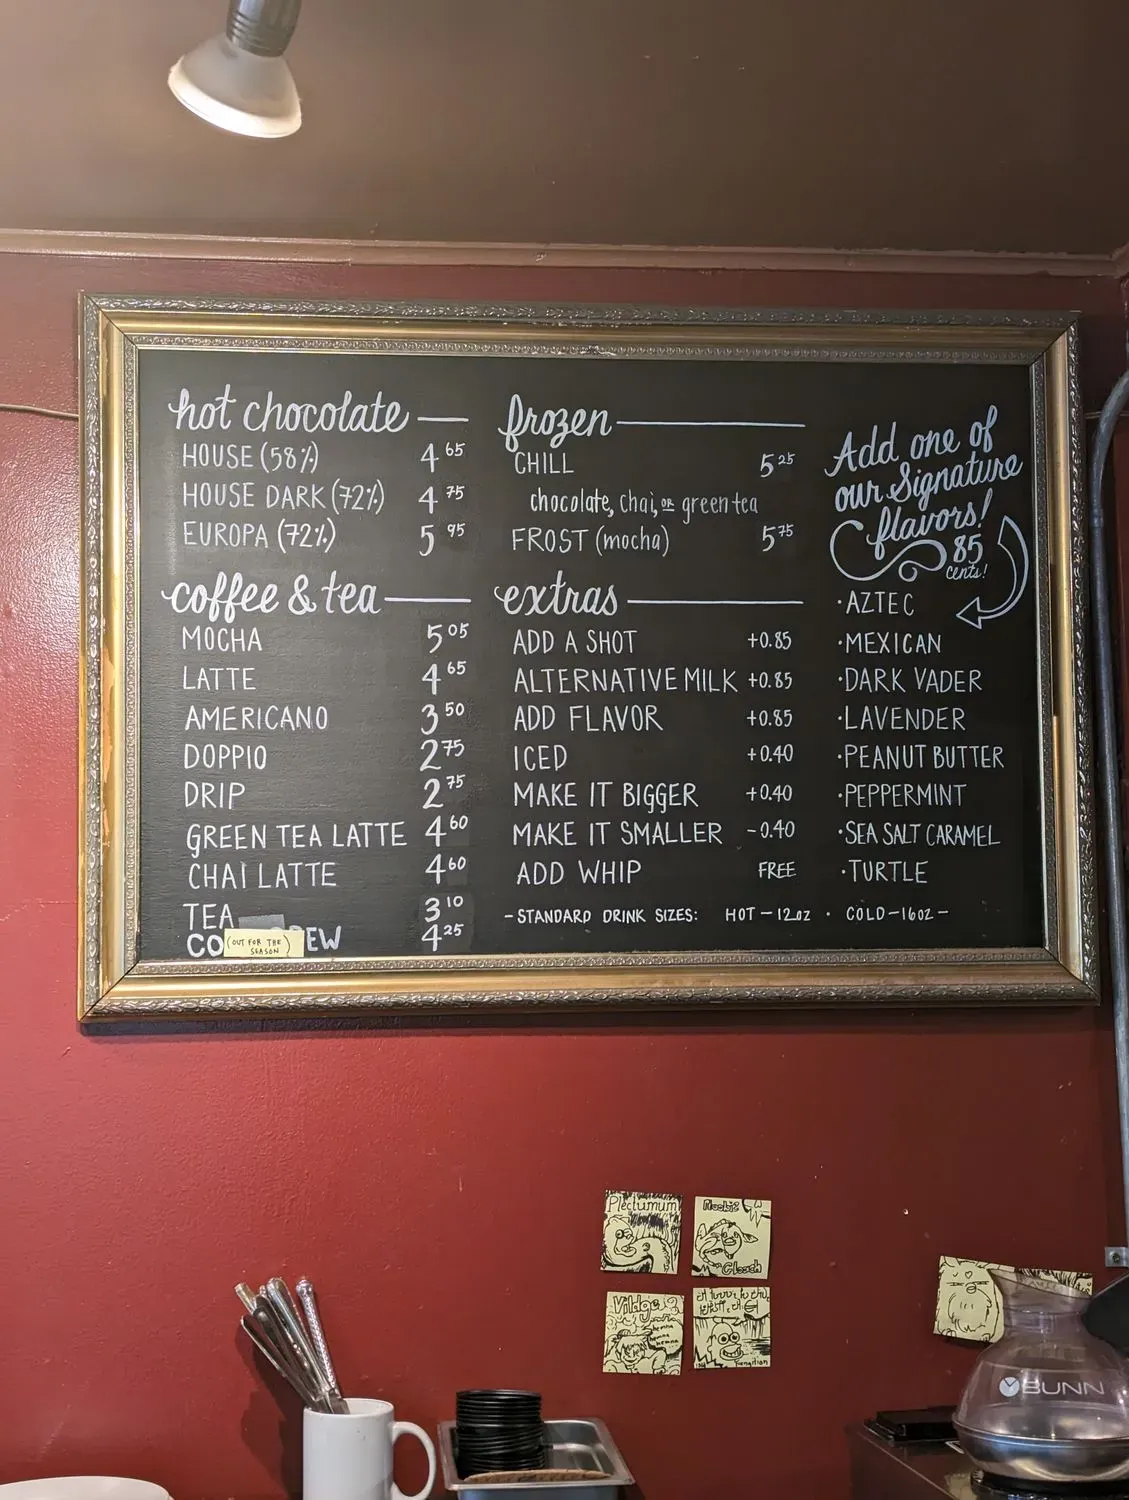 hot chocolate
HOUSE (58%) 4 65
HOUSE DARK (72%) 4 75
EUROPA (72%) 5 95
coffee & tea
MOCHA 5 05
LATTE 4 65
AMERICANO 3 50
DOPPIO 2 75
DRIP 2 75
GREEN TEA LATTE 4 60
CHAI LATTE 4 60
TEA 3 10
CO EW 4 25
(OUT FOR THE
SEASON)
frozen
CHILL 5 25
chocolate, chai, OR green tea
FROST (mocha) 5 75
extras
ADD A SHOT +0.85
ALTERNATIVE MILK +0.85
ADD FLAVOR +0.85
ICED +0.40
MAKE IT BIGGER +0.40
MAKE IT SMALLER -0.40
ADD WHIP FREE
-STANDARD DRINK SIZES: HOT-12oz · COLD-16oz-
Add one of
our Signature
flavors!
85
cents!
·AZTEC
·MEXICAN
·DARK VADER
·LAVENDER
·PEANUT BUTTER
·PEPPERMINT
·SEA SALT CARAMEL
·TURTLE
Plectumum
BUNN